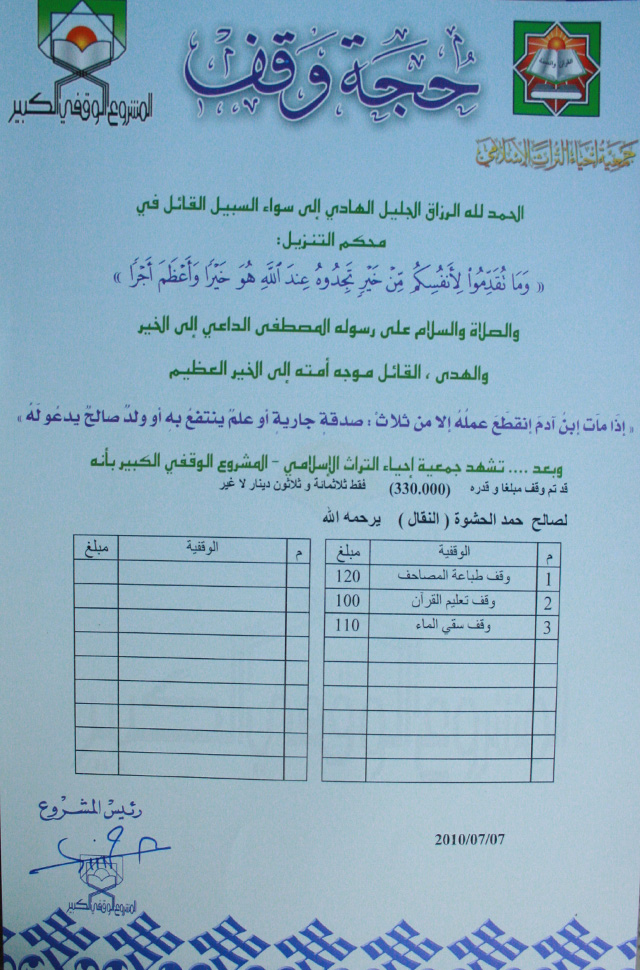 حجة وقف
القرآن والسنة
المشروع الوقفي الكبير
جمعية إحياء التراث الإسلامي
الحمد لله الرزاق الجليل الهادي إلى سواء السبيل القائل في
محكم التنزيل:
« وَمَا تُقَدِّمُوا۟ لِأَنفُسِكُم مِّنْ خَيْرٍ تَجِدُوهُ عِندَ ٱللَّهِ هُوَ خَيْرًا وَأَعْظَمَ أَجْرًا »
والصلاة والسلام على رسوله المصطفى الداعي إلى الخير
والهدى ، القائل موجه أمته إلى الخير العظيم
« إذَا مَات إبنُ آدمَ إنقطَعَ عملُهُ إلا من ثلاثْ : صدقةٍ جاريةٍ أو علمٌ ينتفعُ بهِ أو ولدٌ صالحٌ يدعُو لَهُ »
وبعد .... تشهد جمعية إحياء التراث الإسلامي - المشروع الوقفي الكبير بأنه
قد تم وقف مبلغا و قدره (330.000) فقط ثلاثمائة و ثلاثون دينار لا غير
لصالح حمد الحشوة ( النقال ) يرحمه الله
م الوقفية مبلغ م الوقفية مبلغ
1 وقف طباعة المصاحف 120
2 وقف تعليم القرآن 100
3 وقف سقي الماء 110
رئيس المشروع
2010/07/07
المشروع الوقفي الكبير